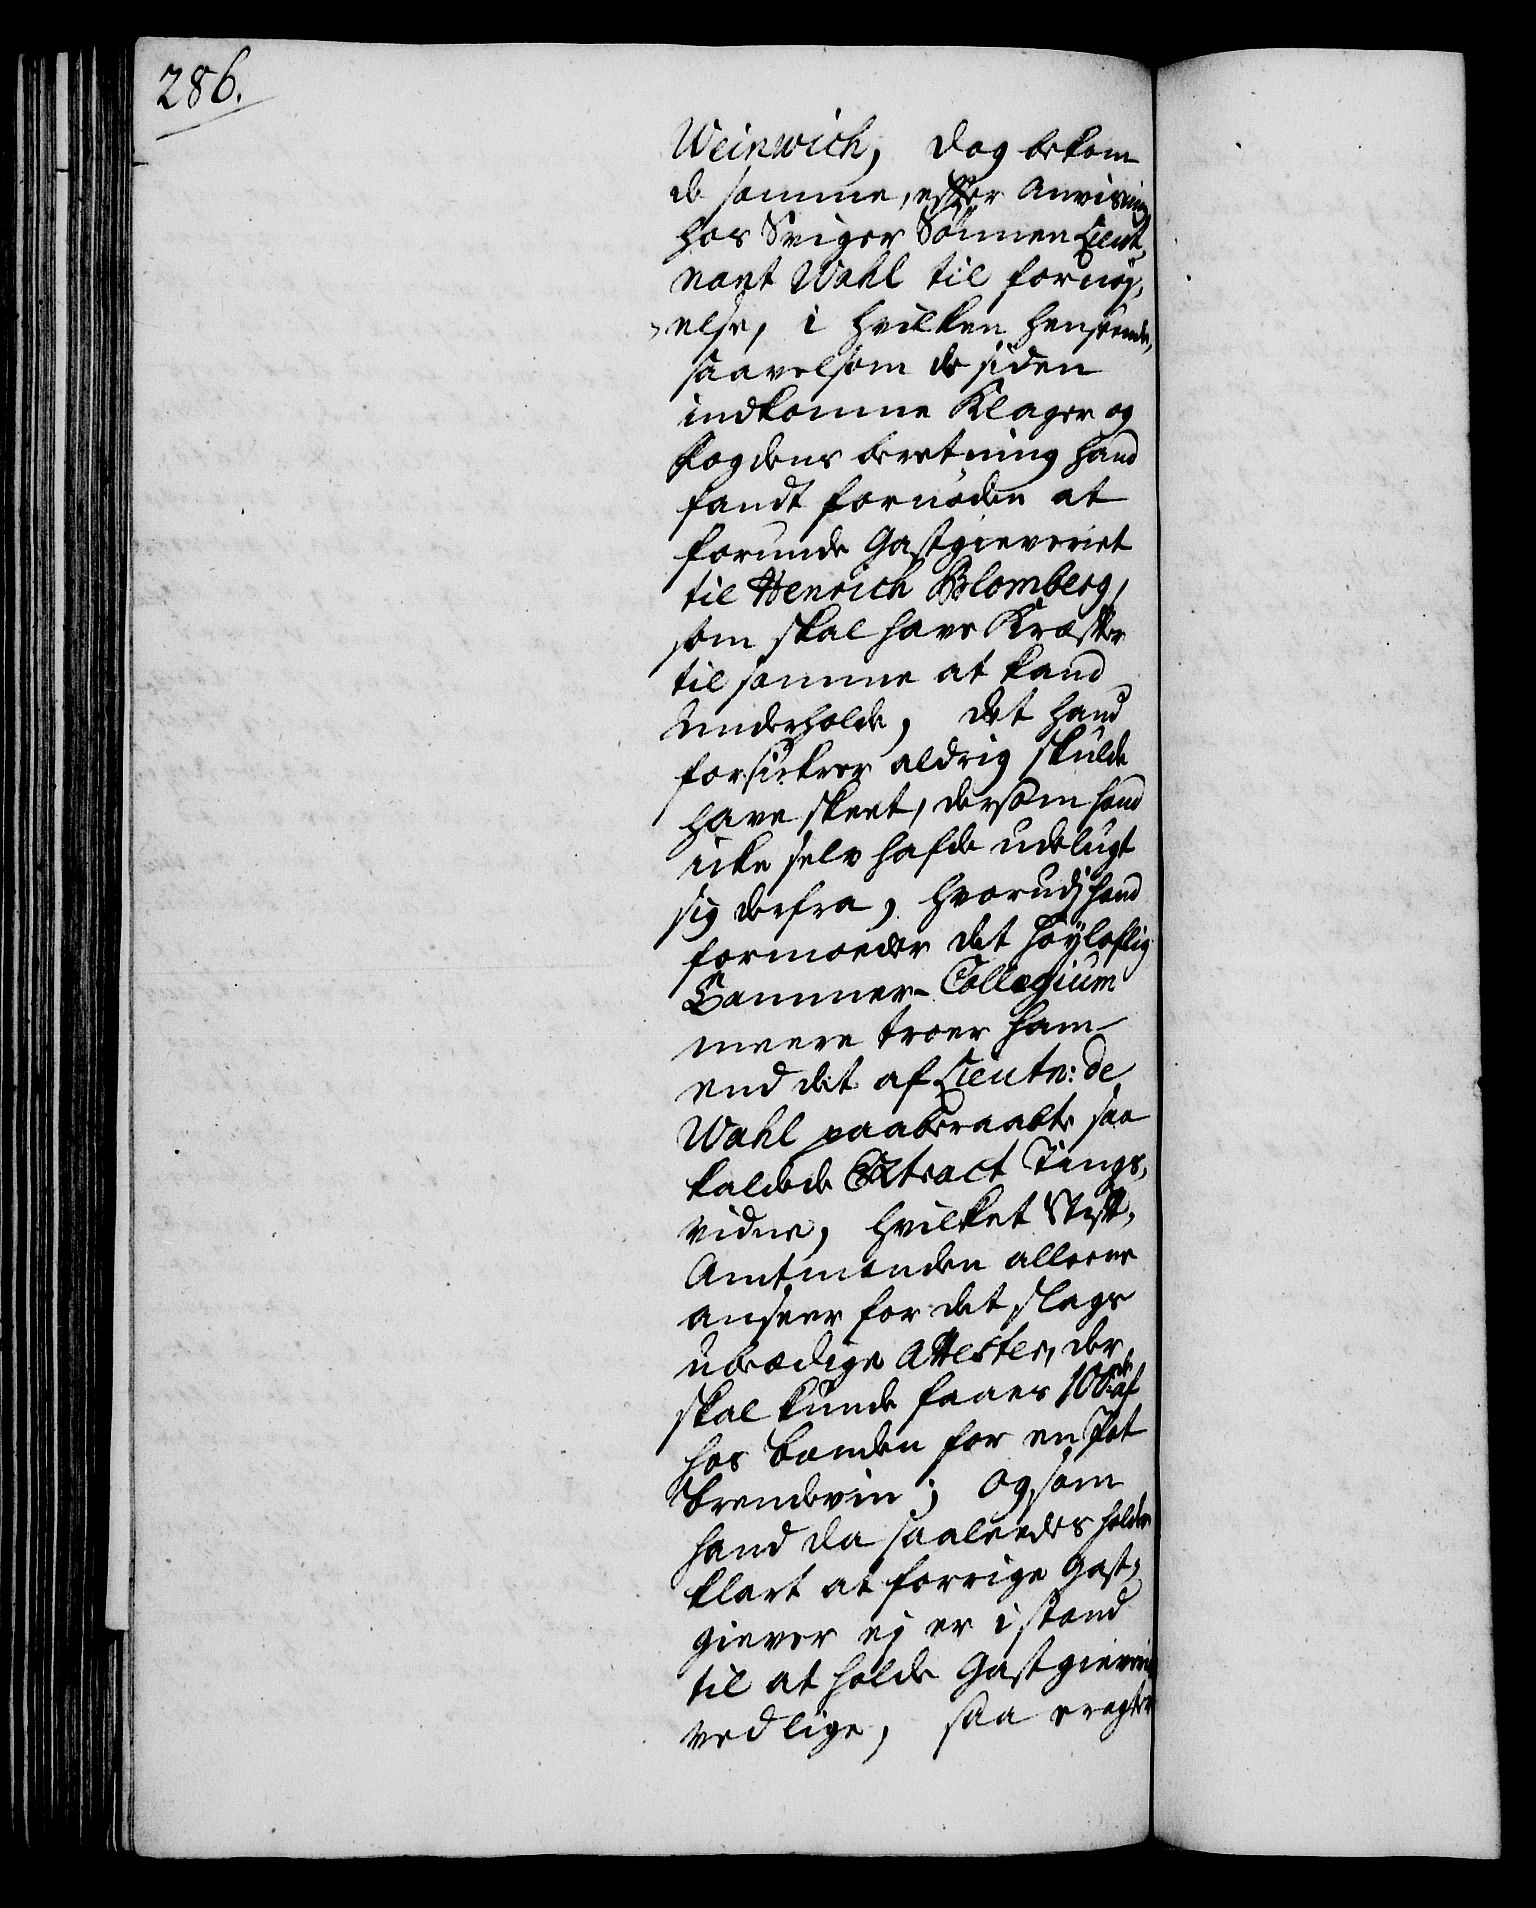 286.
Weinwich, dog bekom
de samme, efter Anvisning
hos Sviger Sønnen Lieut,
nant Wahl til fornøy,
else, i hvilken henseende,
saavelsom de siden
indkomne Klager og
fogdens beretning hand
fandt fornøden at
forunde Gastgieveriet
til Henrich Blomberg,
som skal have Kræfter
til samme at kand
underholde, det hand
forsickrer aldrig skulde
have skeet, dersom hand
icke selv hafde udelugt
sig derfra, hvorudj hand
formoeder det høyloflig
Cammer-Collegium
meere troer ham
end det af Lieutn: de
Wahl paaberaabte saa
kaldede Extract Tings,
vidne, hvilket Stift,
Amtmanden alleene
anseer for det slags
ubædige Attester, der
skal kunde faaes 100de af
hos bonden for en Pot
brendeviin; og som
hand da saaleedes holder
klart at forrige Gast,
giever ej er i stand
til at holde Gastgieverie
ved lige, saa eragter